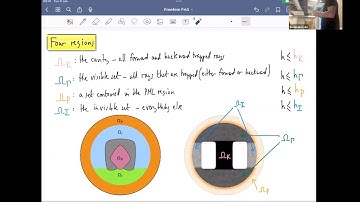 Freeform Pt1
Four regions
Ω_K : the cavity – all forward and backward trapped rays h ≤ h_K
Ω_Γ : the visible set – all rays that are trapped (either forward or backward) h ≤ h_Γ
Ω_P : a set contained in the PML region h ≤ h_P
Ω_I : the invisible set – everything else h ≤ h_I
Ω_I
Ω_Γ
Ω_K
Ω_P